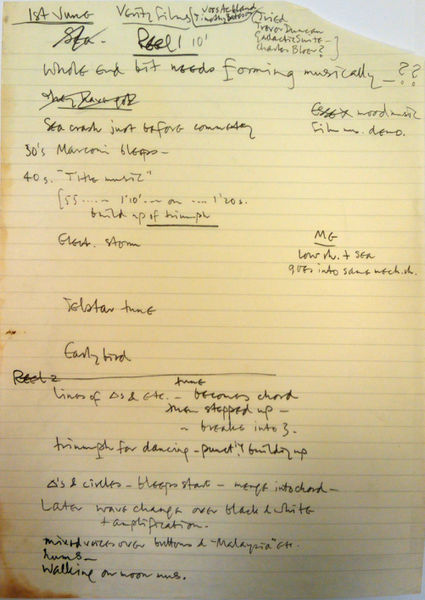 1st June
Verity Films
Timothy
Tried
Trevor Duncan
Galactic Suite -
Charles
Sea.
REEL 1 10'
Whole end bit needs forming musically - ??
mood music
film m. demo.
Sea crash just before commentary
30's Marconi bleeps -
40s. "Title music"
[55 ..... - 1'10" ... on .... 1'20s.
build up of triumph
Elect. storm
ME
low + sea
goes into same
Telstar tune
Early bird
Reel 2
tune
lines of Δs & etc. - becomes chord
then stepped up -
- breaks into 3.
triumph for dancing - building up
Δ's & circles - bleeps start - merge into chord -
Later wave change over black & white
+ amplification.
mixed voices over buttons & "Malaysia" etc.
hums -
Walking on moon mus.